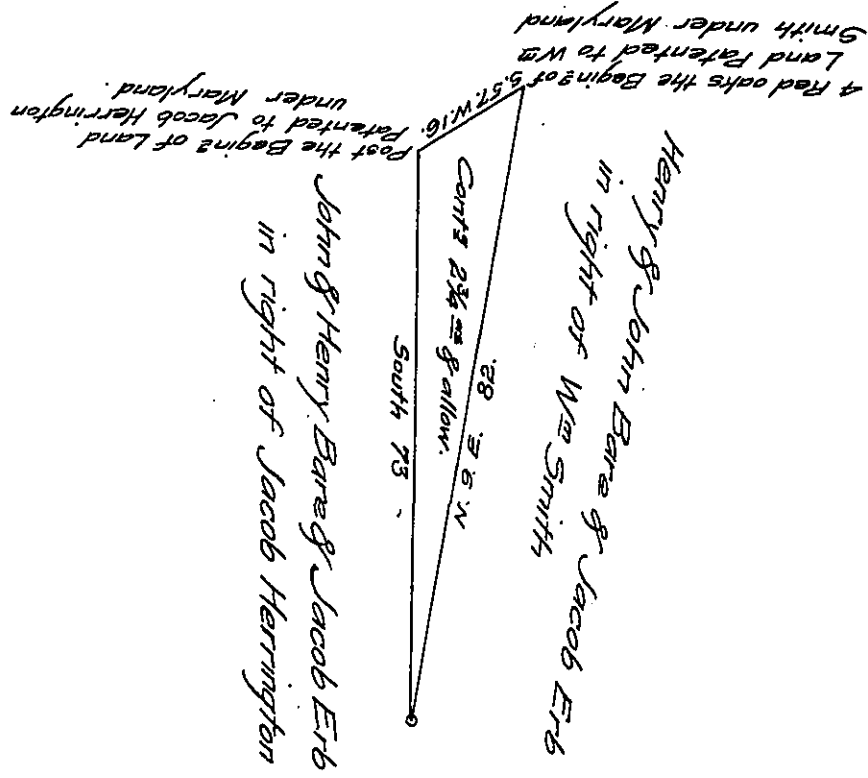 4 Red oaks the Begin.g of
Land Patented to Wm
Smith under Maryland
S.57.W.16.
Post the Begin.g of Land
Patented to Jacob Herrington
under Maryland.
Henry & John Bare & Jacob Erb
in right of Wm Smith
N 9 E 82.
Cont.g 2¾ as & allow.
South 73
John & Henry Bare & Jacob Erb
in right of Jacob Herrington